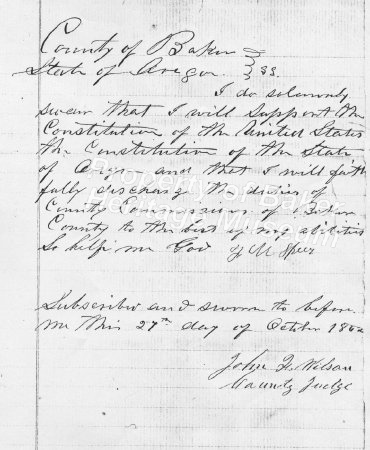 County of Baker
State of Oregon } SS.
I do solemnly
swear that I will support the
Constitution of the United States
the Constitution of the State
of Oregon and that I will faith
fully discharge the duties of
County Commissioner of Baker
County to the best of my abilities
So help me God Speer
Subscribed and sworn to before
me this 27th day of October
John Wilson
County Judge
Property of Baker